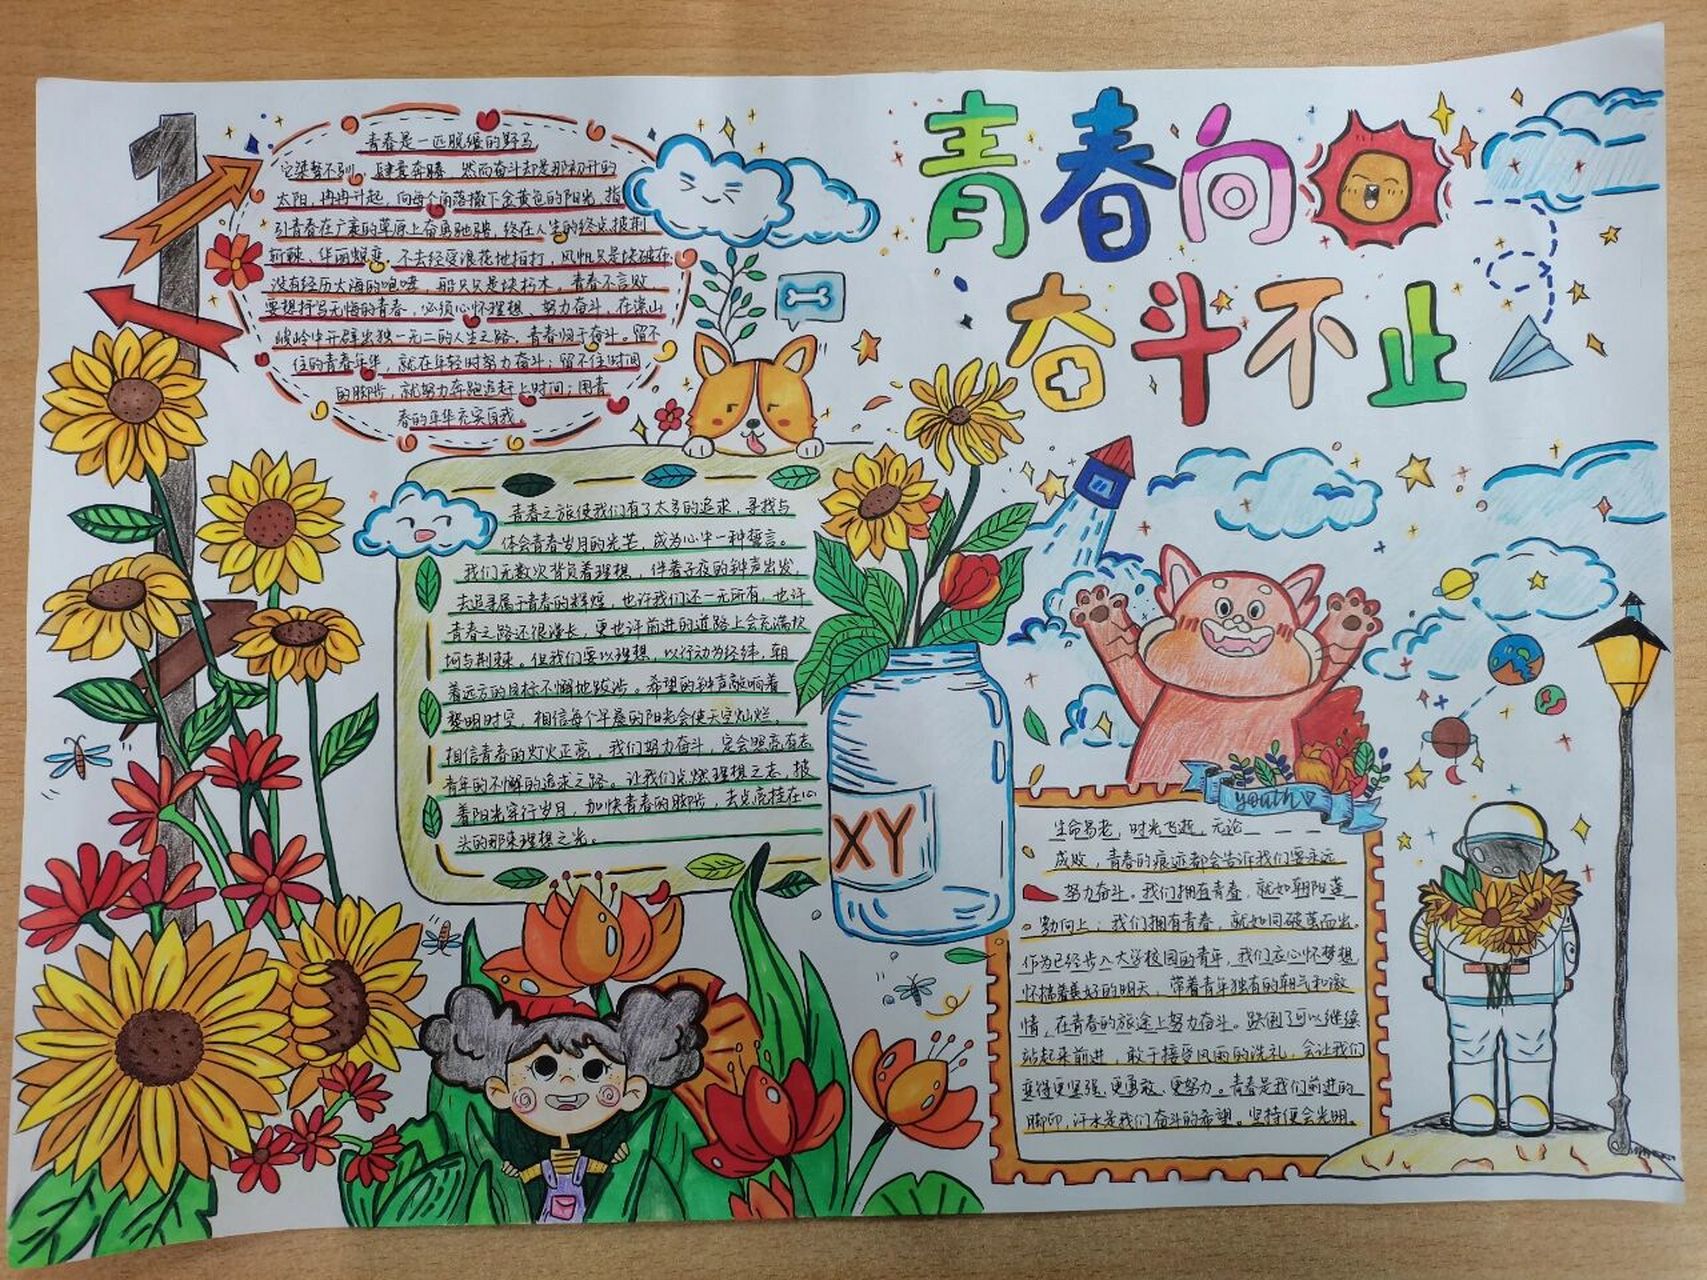 青春向
奋斗不止
青春是一匹脱缰的野马
它桀骜不驯,肆意奔腾 然而奋斗却是那初升的
太阳,冉冉升起,向每个角落撒下金黄色的阳光,指
引青春在广袤的草原上奋勇驰骋,终在人生的终点披荆
斩棘、华丽蜕变。不去经受浪花地拍打,风帆只是块破布,
没有经历大海的咆哮,船只只是块朽木。青春不言败
要想抒写无悔的青春,必须心怀理想、努力奋斗,在深山
峻岭中开辟出独一无二的人生之路。青春归于奋斗。留不
住的青春年华,就在年轻时努力奋斗;留不住时间
的脚步,就努力奔跑追赶上时间;用青
春的年华充实自我。
青春之旅使我们有了太多的追求,寻找与
体会青春岁月的光芒,成为心中一种誓言。
我们无数次背负着理想,伴着子夜的钟声出发,
去追寻属于青春的辉煌,也许我们还一无所有,也许
青春之路还很漫长,更也许前进的道路上会充满坎
坷与荆棘。但我们要以理想,以行动为经纬,朝
着远方的目标不懈地跋涉。希望的钟声敲响着
黎明时空,相信每个早晨的阳光会使天空灿烂,
相信青春的灯火正亮,我们努力奋斗,定会照亮有志
青年的不懈的追求之路。让我们点燃理想之志,披
着阳光穿行岁月,加快青春的脚步,去点亮挂在心
头的那束理想之光。
XY
youth
生命易老,时光飞逝,无论
成败,青春的痕迹都会告诉我们要永远
努力奋斗。我们拥有青春,就如朝阳蓬
勃向上;我们拥有青春,就如同破茧而出。
作为已经步入大学校园的青年,我们应心怀梦想,
怀揣着美好的明天,带着青年独有的朝气和激
情,在青春的旅途上努力奋斗。跌倒了可以继续
站起来前进,敢于接受风雨的洗礼,会让我们
变得更坚强、更勇敢、更努力。青春是我们前进的
脚印,汗水是我们奋斗的希望。坚持便会光明。